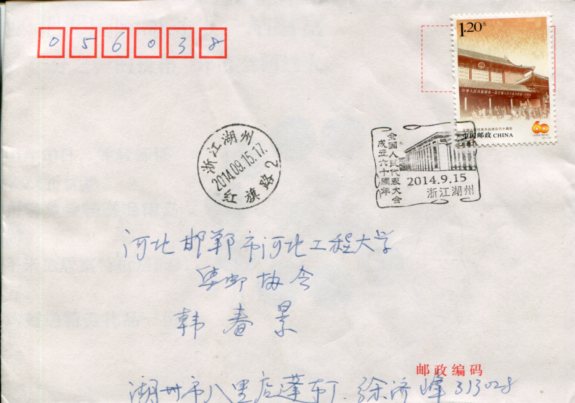 056038
1.20元
中国邮政 CHINA
浙江湖州
2014.09.15.17
红旗路 2
全国人民代表大会
成立六十周年
2014.9.15
浙江湖州
河北邯郸市河北工程大学
集邮协会
韩春景
邮政编码
湖州市八里店 徐济峰 313028